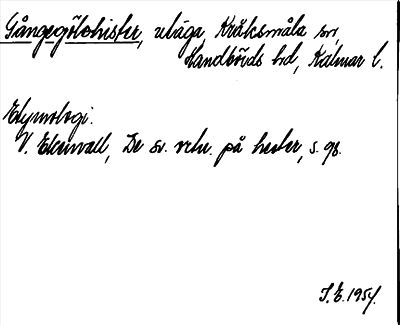 Gångegölehister, utäga, Kråksmåla sn,
Handbörds hd, Kalmar l.
Etymologi.
V. Ekenvall, De sv. ortn. på hester, s. 98.
S.E. 1954.